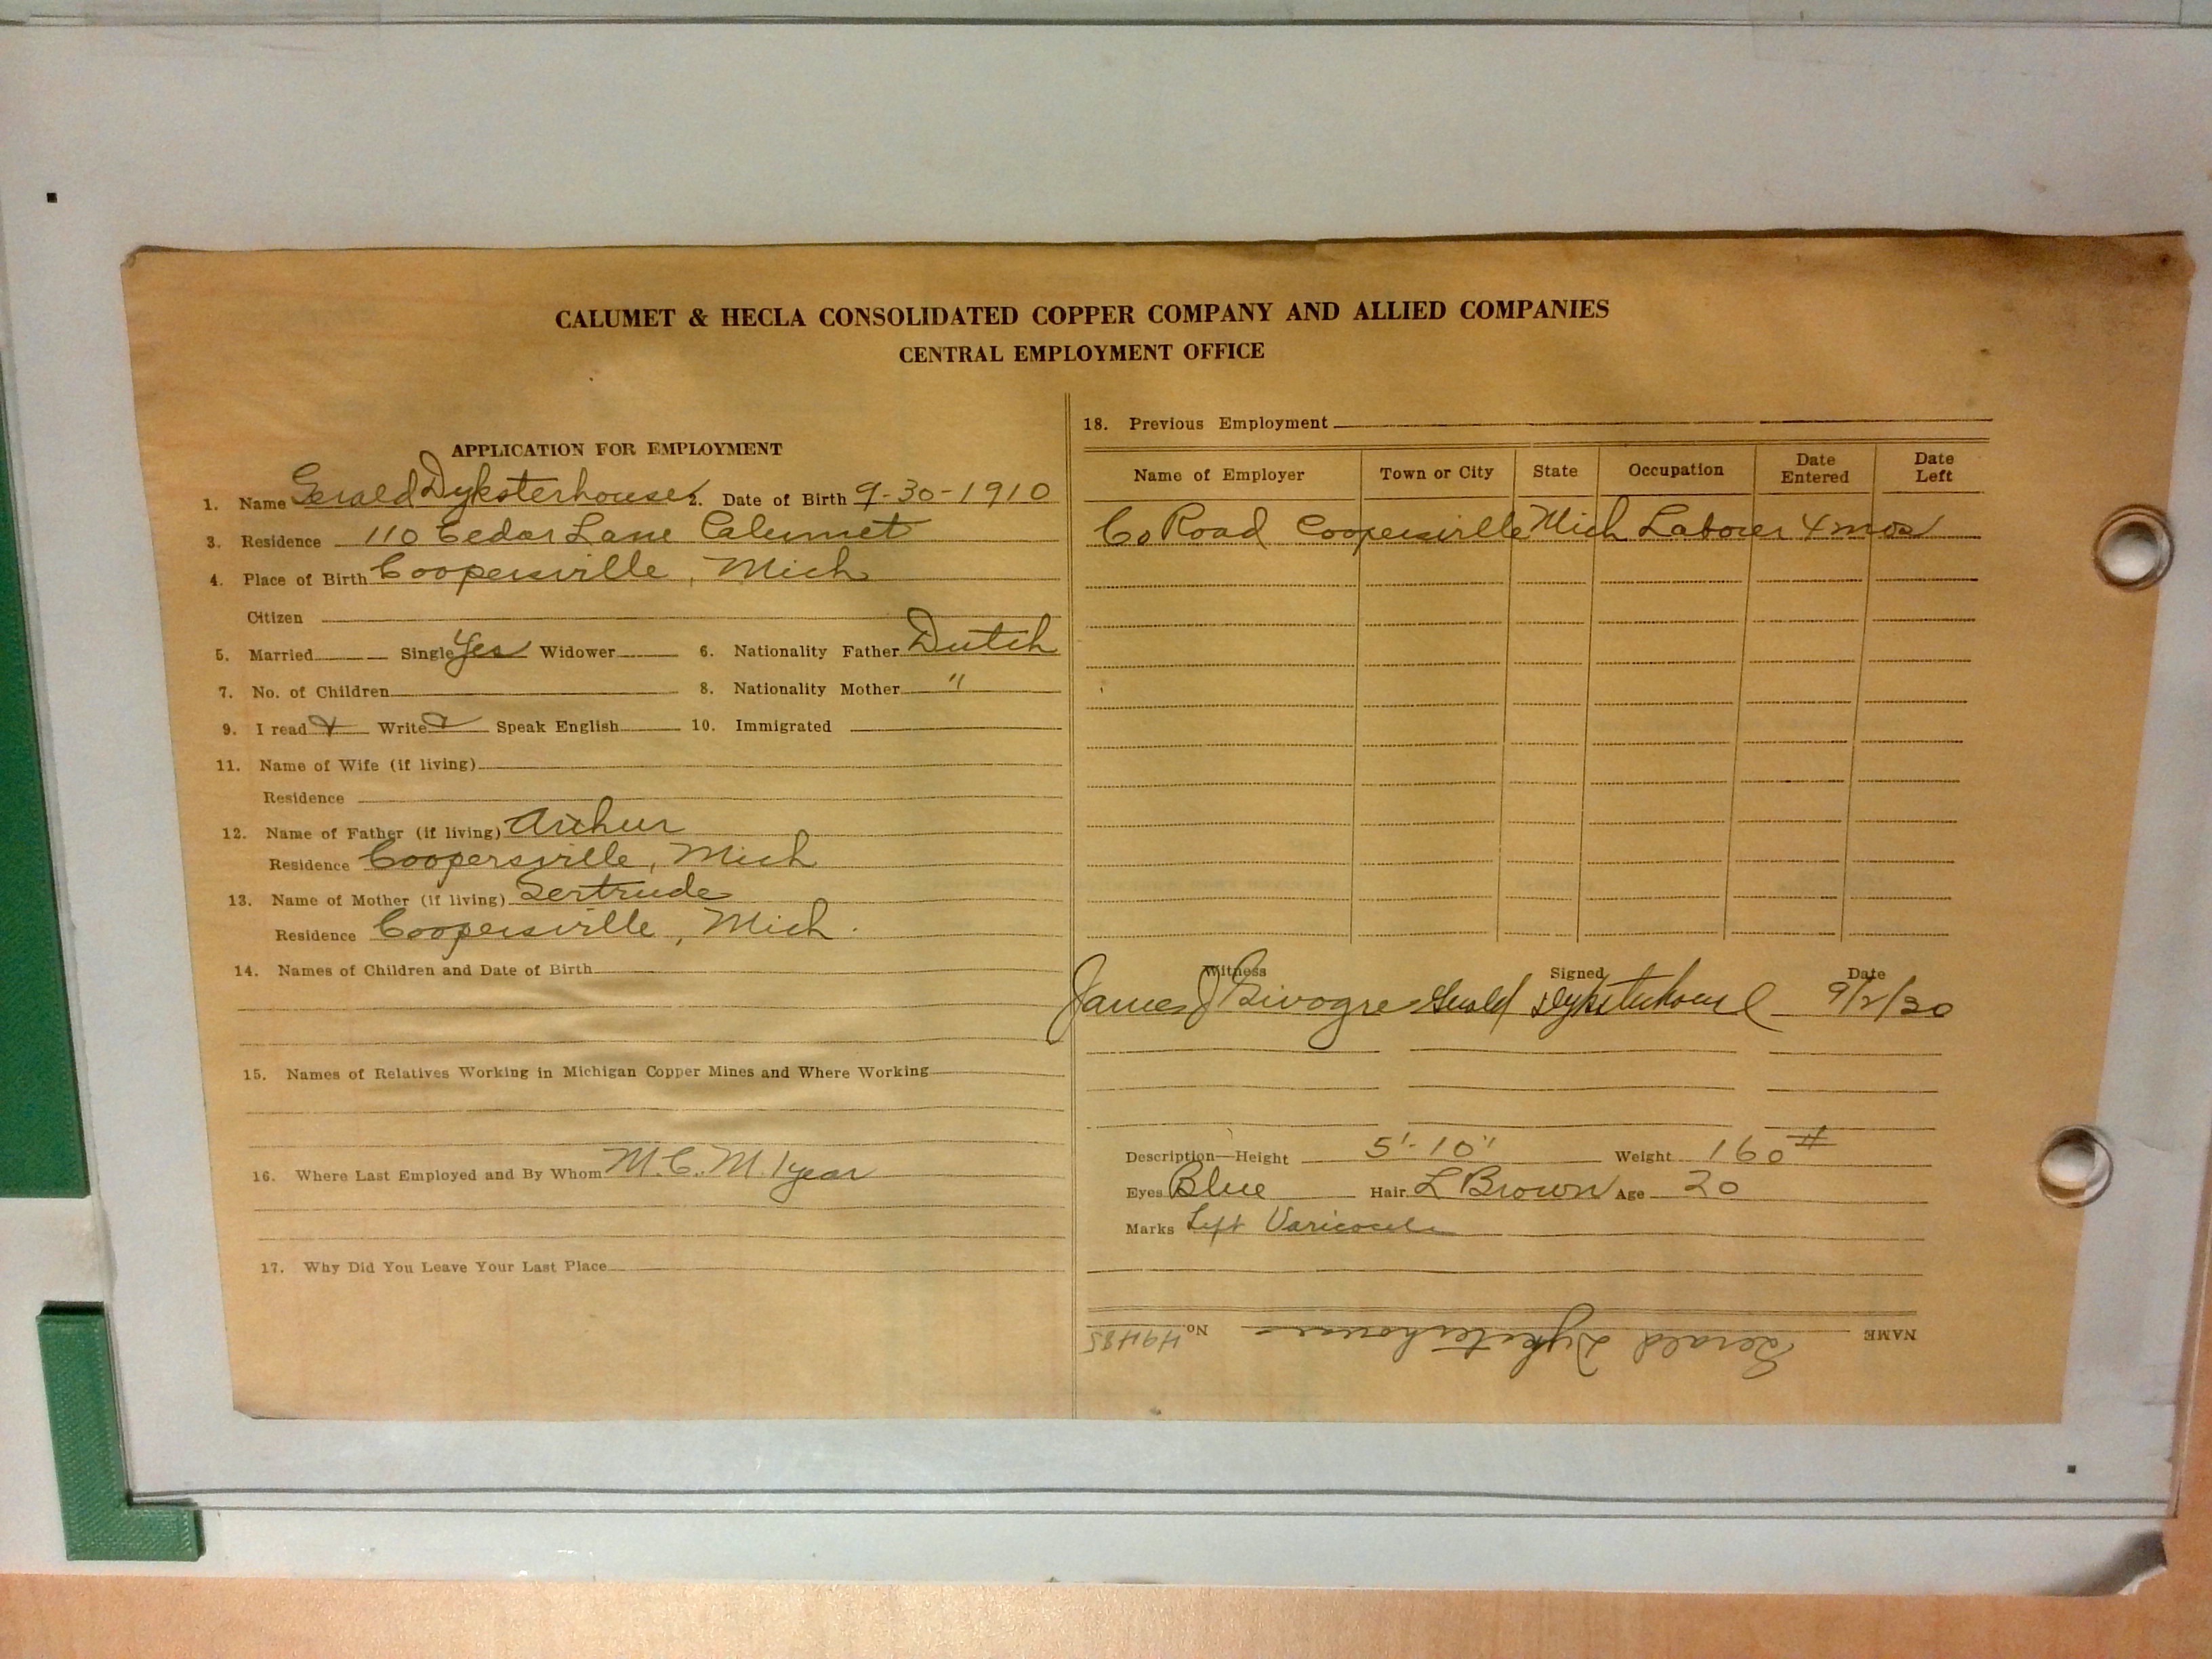 CALUMET & HECLA CONSOLIDATED COPPER COMPANY AND ALLIED COMPANIES
CENTRAL EMPLOYMENT OFFICE
APPLICATION FOR EMPLOYMENT
1. Name Gerald Dyksterhouse 2. Date of Birth 9-30-1910
3. Residence 110 Cedar Lane Calumet
4. Place of Birth Coopersville, Mich
Citizen
5. Married Single Yes Widower 6. Nationality Father Dutch
7. No. of Children 8. Nationality Mother "
9. I read Write Speak English 10. Immigrated
11. Name of Wife (if living)
Residence
12. Name of Father (if living) Arthur
Residence Coopersville, Mich
13. Name of Mother (if living) Gertrude
Residence Coopersville, Mich.
14. Names of Children and Date of Birth
15. Names of Relatives Working in Michigan Copper Mines and Where Working
16. Where Last Employed and By Whom M.C.M. 1 year
17. Why Did You Leave Your Last Place
18. Previous Employment
Name of Employer Town or City State Occupation Date Entered Date Left
Co Road Coopersville Mich Laborer 4 mos
Witness Signed Date
James J Gerald Dyksterhouse 9/2/30
Description—Height 5'-10" Weight 160#
Eyes Blue Hair L Brown Age 20
Marks Left Varicocele
NAME Gerald Dyksterhouse No. 49485